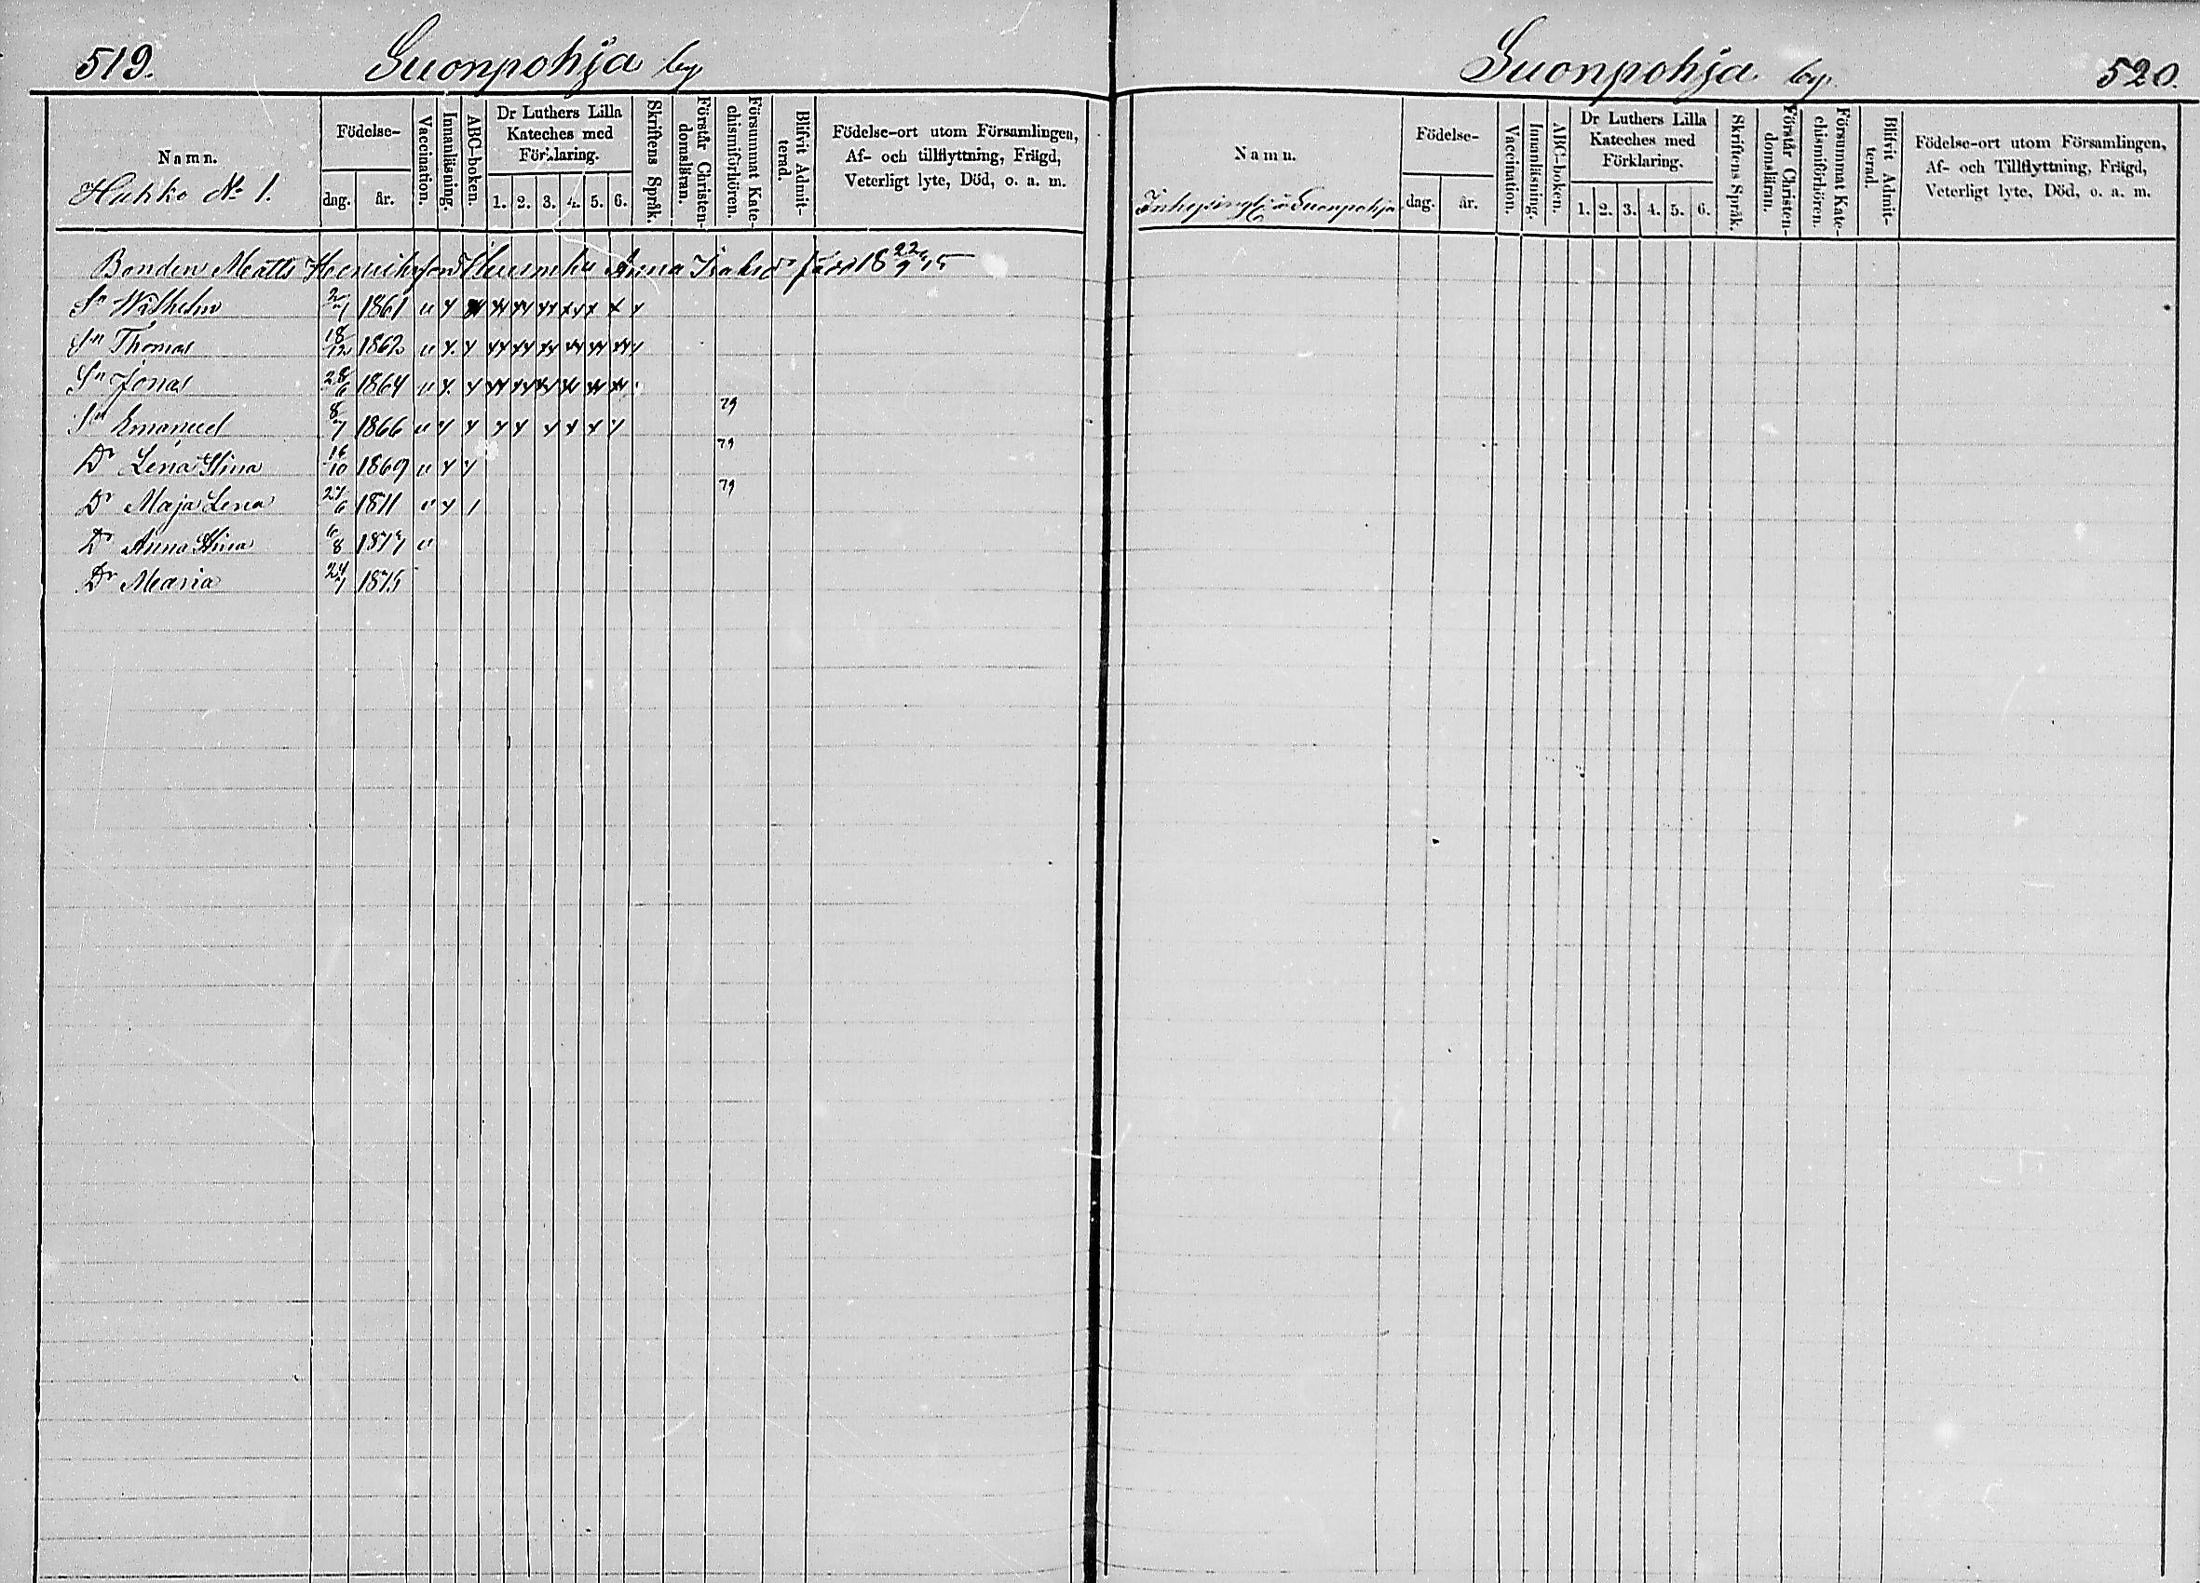 519.
Suonpohja by
Namn.
Huhko No 1.
Födelse-
dag.
år.
Vaccination.
Innanläsning.
ABC-boken.
Dr Luthers Lilla
Kateches med
Förklaring.
1. 2. 3. 4. 5. 6.
Skriftens Språk.
Förstår Christen-
domsläran.
Försummat Kate-
chismiförhören.
Blifvit Admit-
terad.
Födelse-ort utom Församlingen,
Af- och tillflyttning, Frägd,
Veterligt lyte, Död, o. a. m.
Bonden Matts Anna 18 22/9 15
Sn Wilhelm 2/7 1861 u
Sn Thomas 18/12 1862 u
Sn Jonas 28/6 1864 u
Sn Emanuel 8/7 1866 u 79
Dr Lena Stina 16/10 1869 u 79
Dr Maja Lena 27/6 1871 u 79
Dr Anna Stina 6/8 1877 u
Dr Maria 24/7 1875
Suonpohja by.
520.
Namn.
Inhysingar i Suonpohja
Födelse-
dag.
år.
Vaccination.
Innanläsning.
ABC-boken.
Dr Luthers Lilla
Kateches med
Förklaring.
1. 2. 3. 4. 5. 6.
Skriftens Språk.
Förstår Christen-
domsläran.
Försummat Kate-
chismiförhören.
Blifvit Admit-
terad.
Födelse-ort utom Församlingen,
Af- och Tillflyttning, Frägd,
Veterligt lyte, Död, o. a. m.